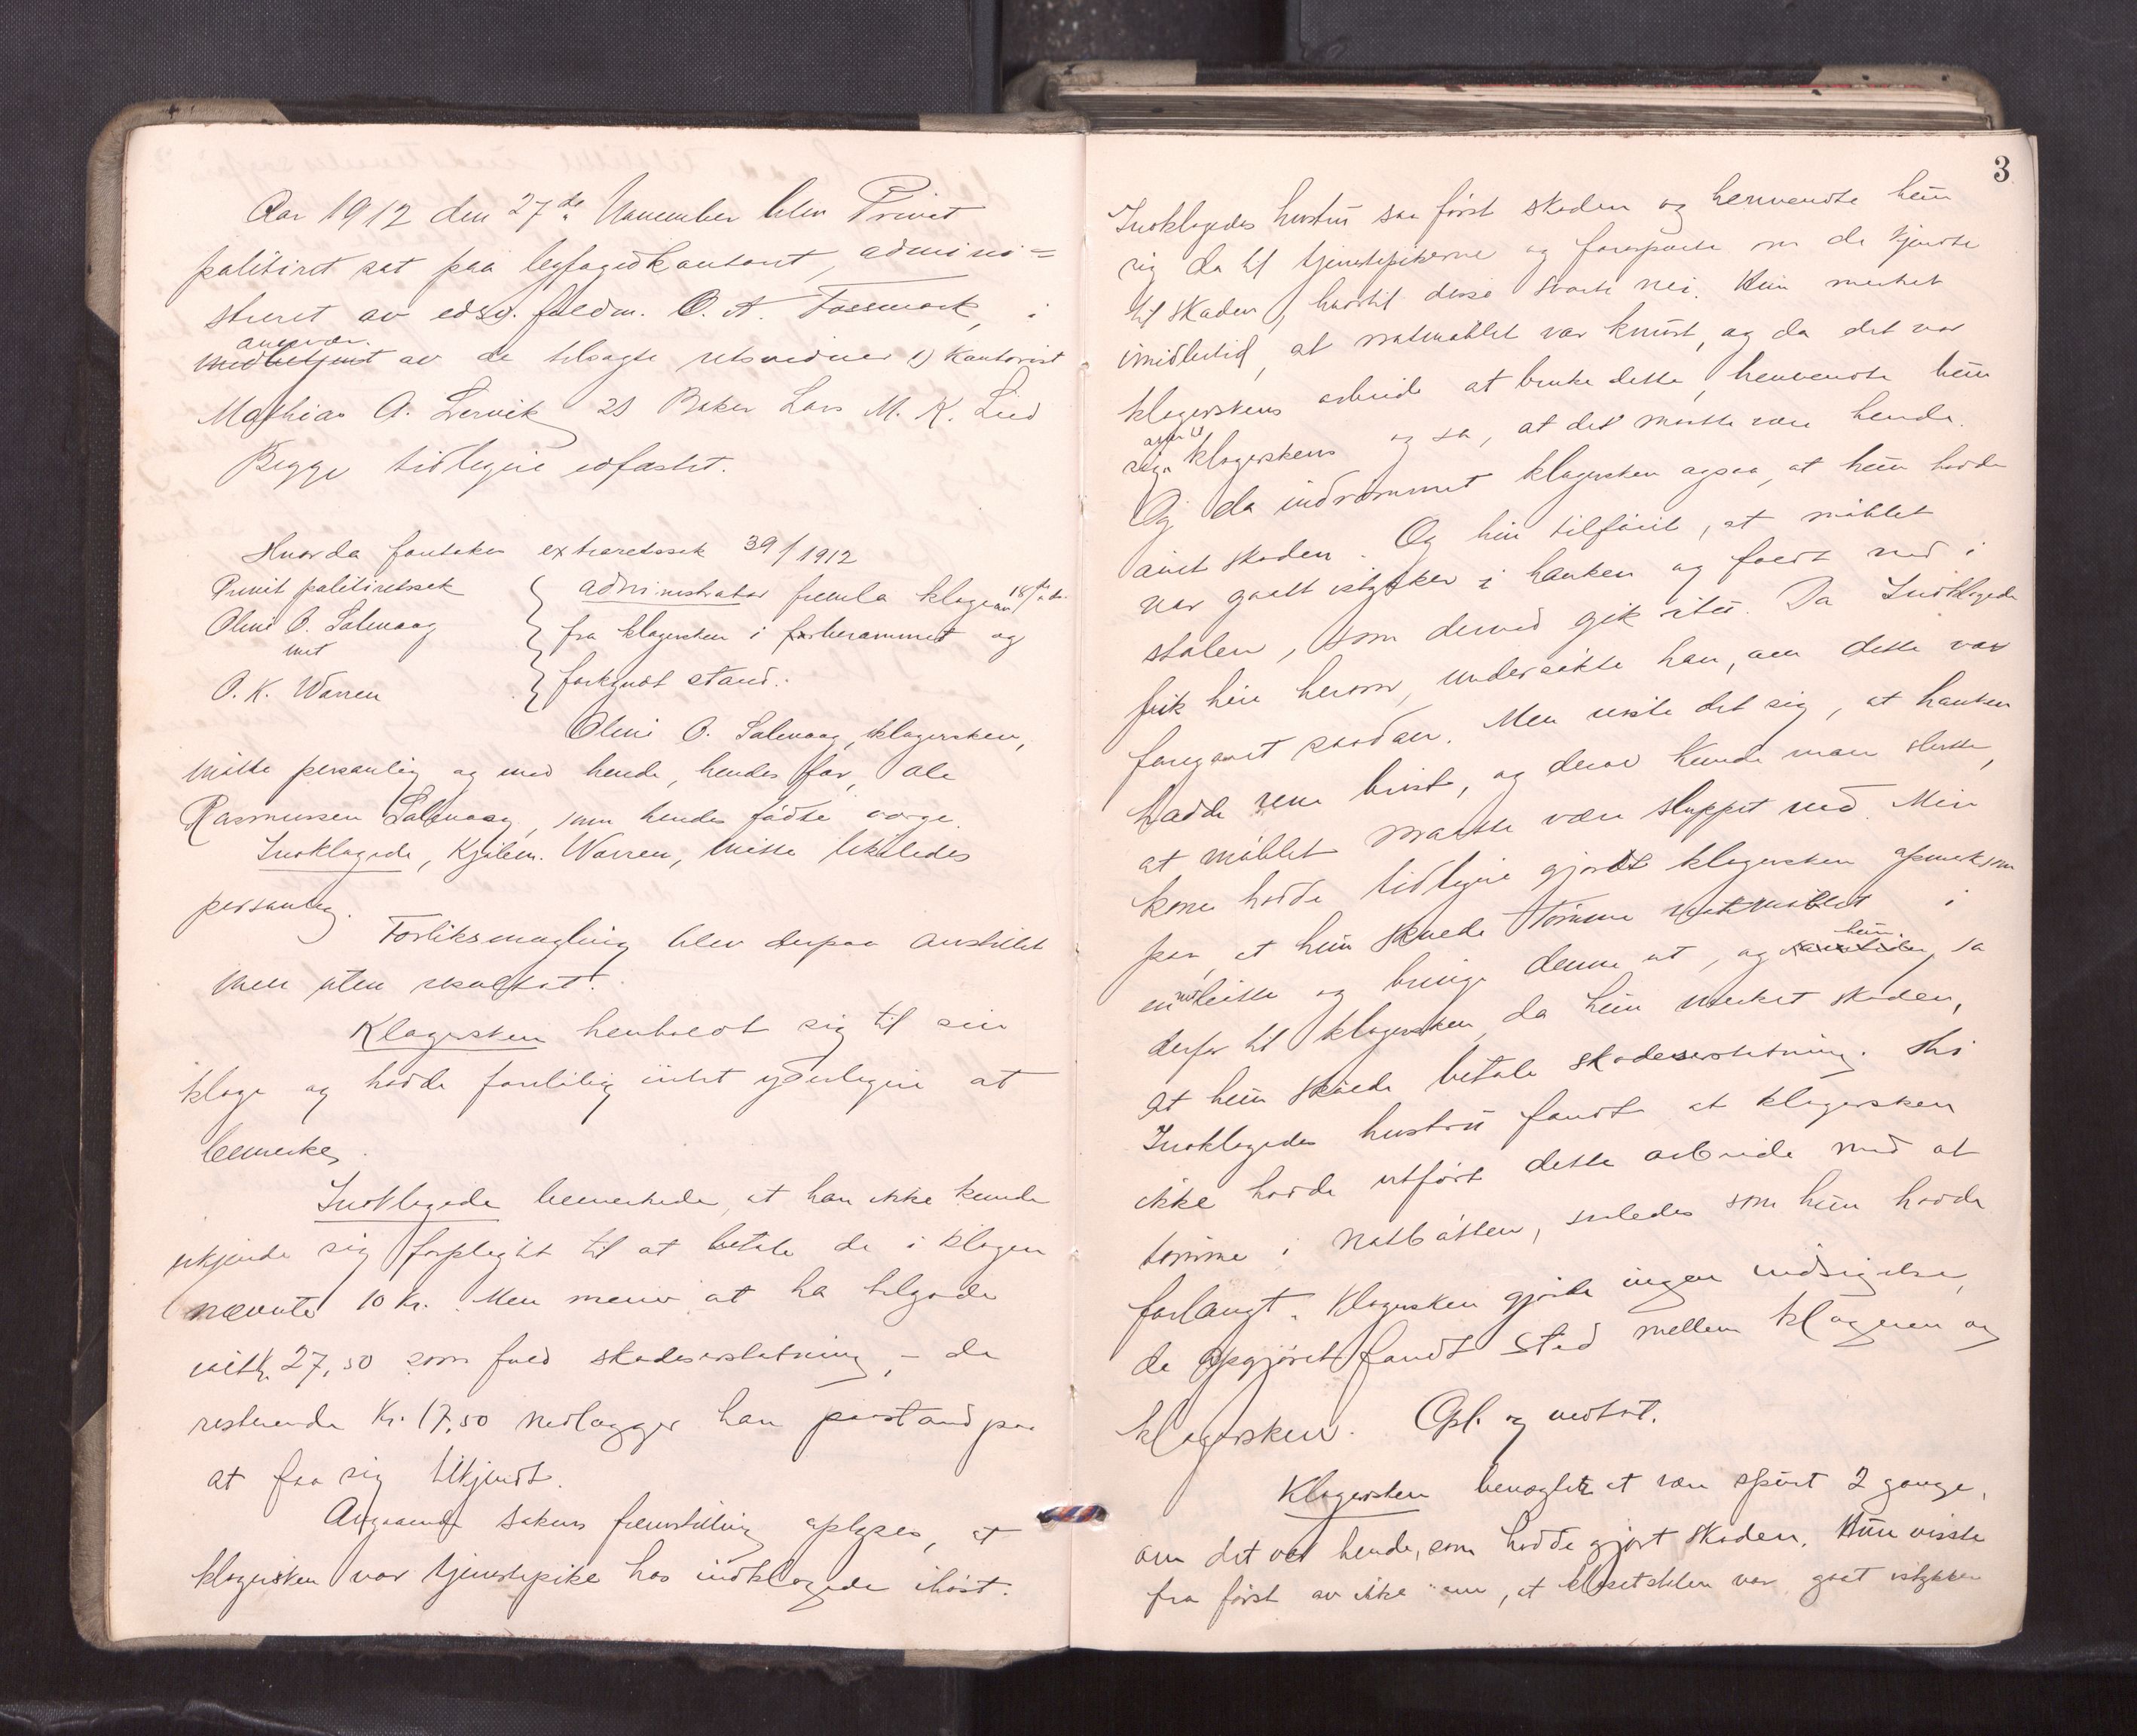 Aar 1912 den 27de November blev Privat
politiret sat paa byfogedkontoret, admini=
streret av edsv. fuldm. O. A. Fossmark, i
overvær
medbetjent av de tilsagte retsvidner 1) Kontorist
Mathias A. Lervik 2) Baker Lars M. K. Lied
Begge tidligere edfæstet.
Hvorda foretokes extraretssak 39/1912
Privat politiretssak
Oline O. Salmaag
mot
O. K. Warren
administrator fremla klagen av 18/ ds.
fra klagersken i forberammet og
forkyndt stand.
Oline O. Salmaag, klagersken,
møtte personlig og med hende, hendes far, Ole
Rasmussen Salmaag, som hendes fødte verge.
Indklagede, Kjøbm. Warren, møtte likeledes
personlig.
Forliksmægling blev derpaa anstillet
men uten resultat.
Klagersken henholdt sig til sin
klage og hadde foreløbig intet yderligere at
bemerke.
Indklagede bemerkede, at han ikke kunde
erkjende sig forpligtet til at betale de i klagen
nævnte 10 kr. Men mener at ha tilgode
27,50 som fuld skadeserstatning, - de
resterende Kr. 17,50 nedlægger han paastand paa
at faa sig tilkjendt.
Angaaende sakens fremstilling oplyses, at
klagersken var tjenestepike hos indklagede ihøst.
3
Indklagedes hustru saa først skaden og henvendte hun
sig da til tjenestepikerne og forespurte om de kjendte
til skaden, hvortil disse svarte nei. Hun merket
imidlertid, at natmøblet var knust, og da det var
klagerskens arbeide at bruke dette, henvendte hun
sig klagersken og sa, at det maatte være hende.
Og da indrømmet klagersken ogsaa, at hun hadde
gjort skaden. Og hun tilføiet, at møblet
var gaatt istykker i hanken og faldt ned i
skalen, som derved gik itu. Da Indklagede
fik høre herom, undersøkte han, om dette var
foregaaet saadan. Men viste det sig, at hanken
hadde rene brist, og derav kunde man slutte,
at møblet maatte være sluppet ned. Min
kone hadde tidligere gjort klagersken opmerksom
paa, at hun skulde tømme natmøblet i
en bøtte og bringe denne ut, og hun sa
derfor til klagersken, da hun merket skaden,
at hun skulde betale skadeserstatning. Thi
Indklagedes hustru fandt at klagersken
ikke hadde utført dette arbeide med at
tømme i natbøtten, saaledes som hun hadde
forlangt. Klagersken gjorde ingen indsigelse,
da opgjøret fandt sted mellem klageren og
klagersken. Opl. og vedtat.
Klagersken benegtet at være spurt 2 gange,
om det var hende, som hadde gjort skaden. Hun visste
fra først av ikke om, at klosetskalen var gaat istykker